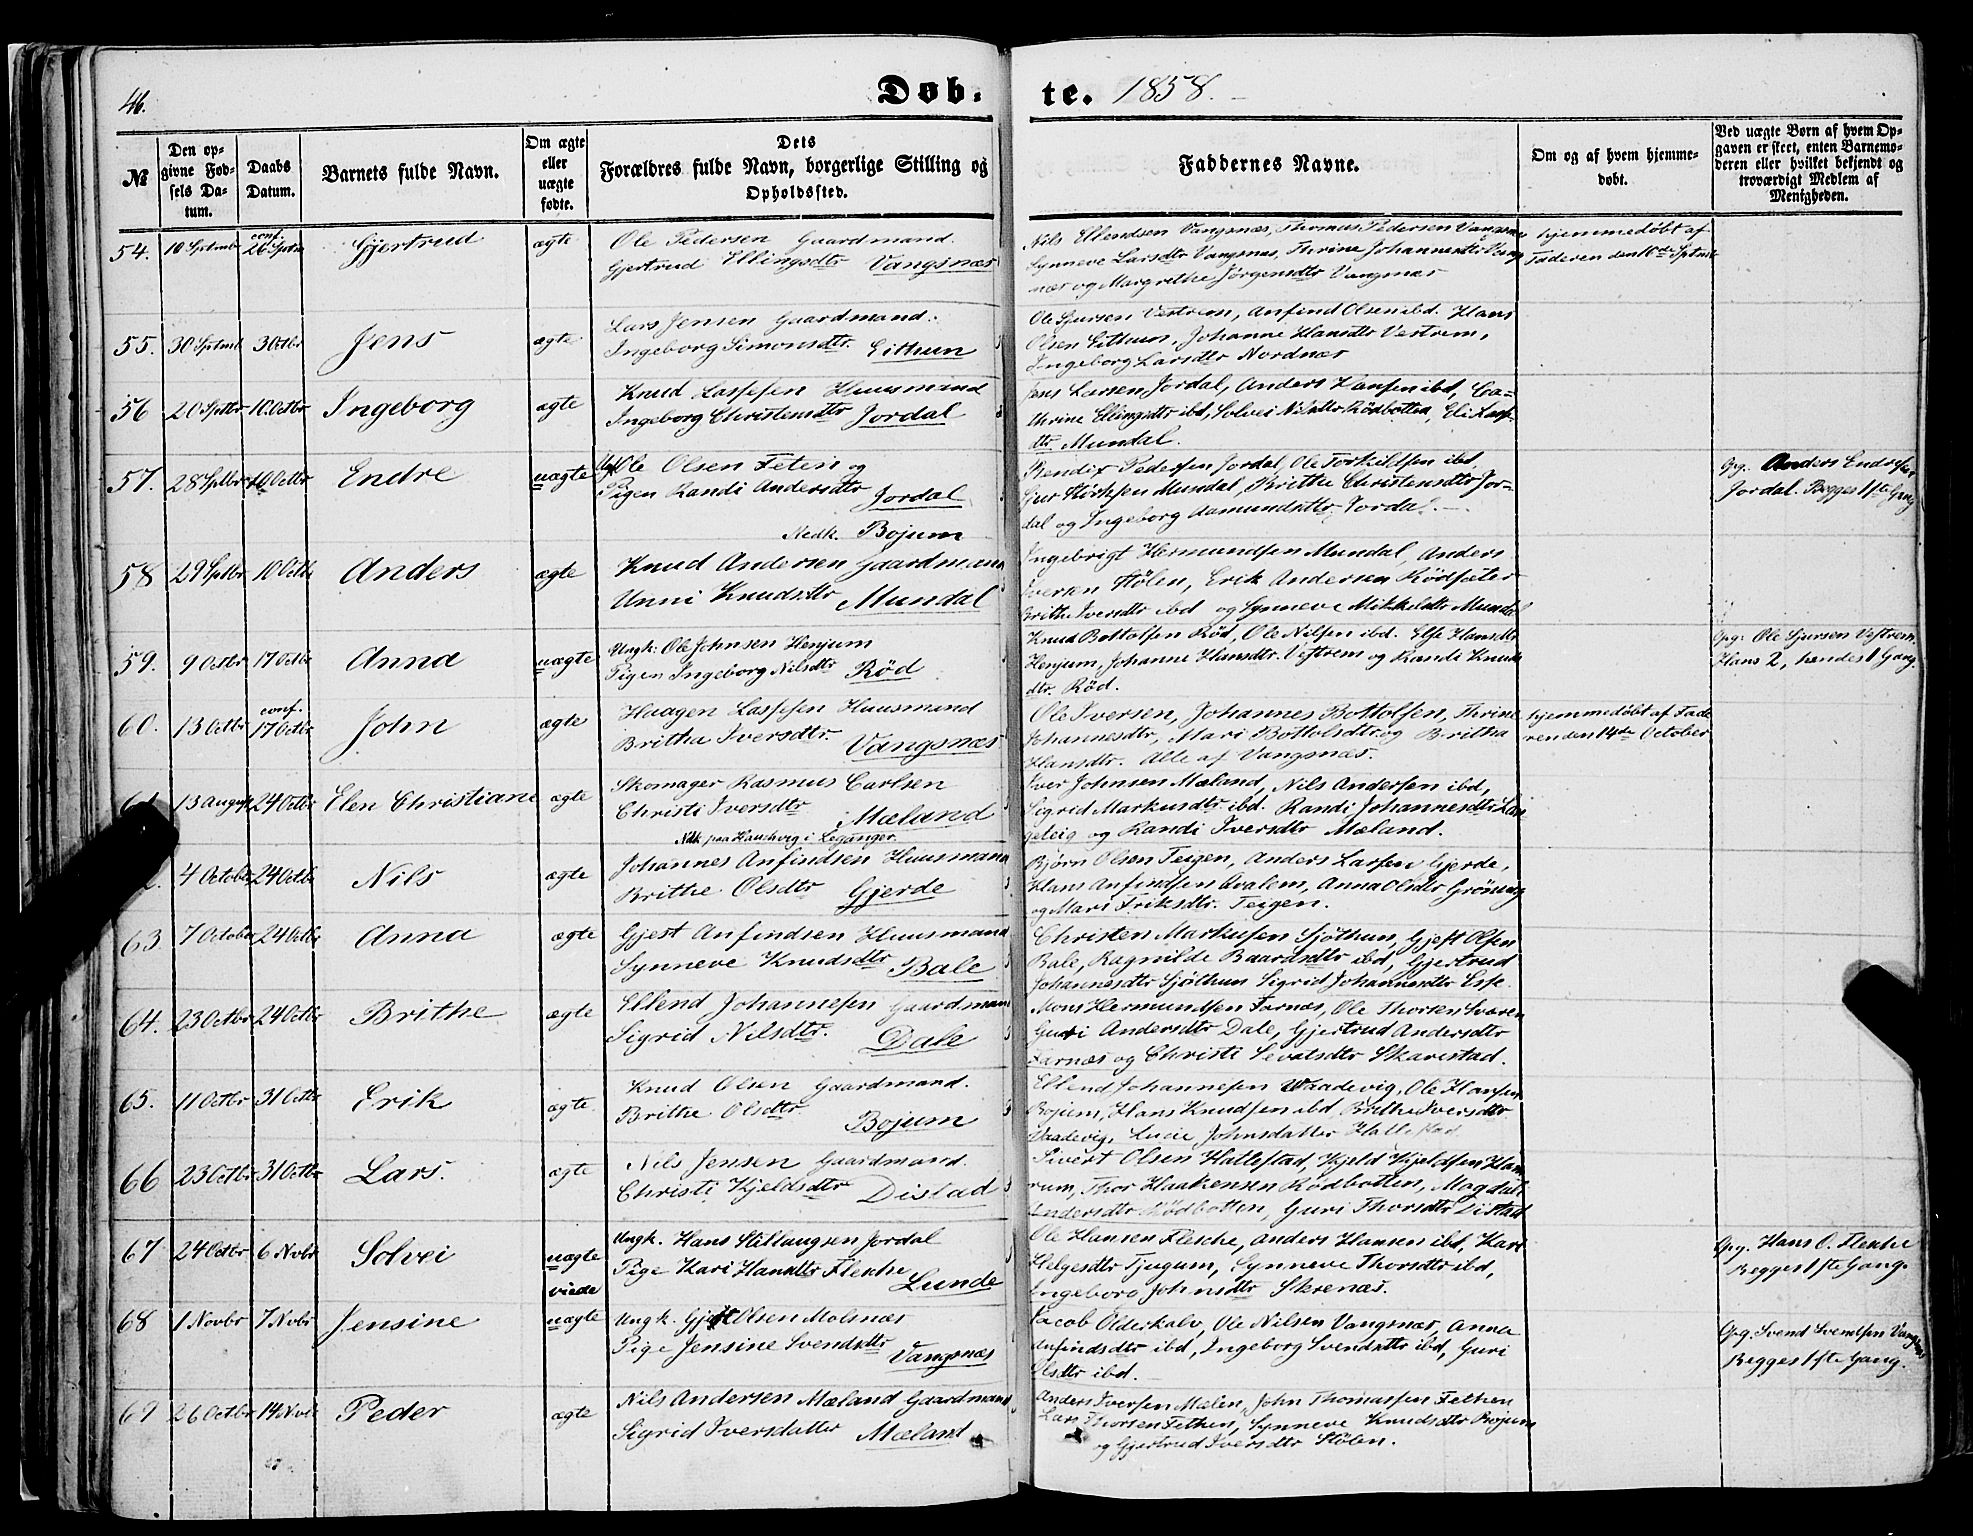 46.
Døb-
te. 1858.
№
Den op-
givne Fød-
sels Da-
tum.
Daabs
Datum.
Barnets fulde Navn.
Om ægte
eller
uægte
fødte.
Dets
Forældres fulde Navn, borgerlige Stilling og
Opholdssted.
Faddernes Navne.
Om og af hvem hjemme-
døbt.
Ved uægte Børn af hvem Op-
gaven er skeet, enten Barnemo-
deren eller hvilket bekjendt og
troværdigt Medlem af
Menigheden.
54. 10 Septmb conf. 26 Septm Gjertrud ægte
Ole Pedersen Gaardmand.
Gjertrud Ellingsdtr Vangsnæs
Nils Ellendsen Vangsnæs, Thomas Pedersen Vangsnæs
Synneve Larsdtr Vangsnæs, Thrine Johannesdtr Vangs
næs og Margrethe Jørgensdtr Vangsnæs
hjemmedøbt af
Faderen den 10de Septmb
55. 30 Septmb 3 Octbr Jens ægte
Lars Jensen Gaardmand.
Ingeborg Simonsdtr. Eithun
Ole Sjursen Vestrem, Anfind Olsen ibd. Hans
Olsen Eithun, Johanne Hansdtr Vestrem,
Ingeborg Larsdtr Nordnæs
56 20 Septbr 10 Octbr Ingeborg ægte
Knud Lassesen Huusmand
Ingeborg Christensdtr Jordal
Jens Larsen Jordal, Anders Hansen ibd, Ca-
thrine Ellingsdtr ibd, Solvei Nilsdtr Rødbotten, Eli Lasse
dtr Mundal.
57. 28 Septbr 10 Octbr Endre uægte
Ungk Ole Olsen Feten og
Pigen Randi Andersdtr Jordal
Bendix Pedersen Jordal, Ole Torkildsen ibd
Sjur Størksen Mundal, Brithe Christensdtr Jor-
dal og Ingeborg Aamundsdtr Jordal.
Opg. Anders Endresen
Jordal. Begges 1ste Gang
Nedk. Bojum
58 29 Septbr 10 Octbr Anders ægte
Knud Andersen Gaardmand
Unni Knudsdtr Mundal
Ingebrigt Hermundsen Mundal, Anders
Iversen Stølen, Erik Andersen Rødsæter
Brithe Iversdtr ibd og Synneve Mikkelsdtr Mundal
59. 9 Octbr 17 Octbr Anna uægte
Ungk: Ole Johnsen Henjum
Pigen Ingeborg Nilsdtr Rød
Knud Bottolsen Rød, Ole Nilsen ibd. Else Hansdtr
Henjum, Johanne Hansdtr. Vestrem og Randi Knuds
dtr. Rød.
Opg: Ole Sjursen Vestrem.
Hans 2, hendes 1 Gang.
60. 13 Octbr conf. 17 Octbr John ægte
Haagen Lassesen Huusmand
Britha Iversdtr. Vangsnæs
Ole Iversen, Johannes Bottolsen, Thrine
Johannesdtr, Mari Bottolsdtr og Britha
Hansdtr. Alle af Vangsnæs.
hjemmedøbt af Fade
ren den 14de October
13 August 24 Octbr Elen Christiane ægte
Skomager Rasmus Carlsen
Christi Iversdtr Mæland
Iver Johnsen Mæland, Nils Andersen ibd,
Sigrid Markusdtr ibd. Randi Johannesdtr Lan
geteig og Randi Iversdtr Mæland.
Nedk. paa Hauchvig i Leganger.
4 October 24 Octbr Nils ægte
Johannes Anfindsen Huusmand
Brithe Olsdtr Gjerde
Bjørn Olsen Teigen, Anders Larsen Gjerde,
Hans Anfindsen Hvalem, Anna Olsdtr Grøning
og Mari Eriksdtr. Teigen.
63 7 October 24 Octbr Anna ægte
Gjest Anfindsen Huusmand
Synneve Knudsdtr Bale
Christen Markusen Sjøthun, Gjest Olsen
Bale, Ragnilde Baardsdtr ibd, Gjertrud
Johannesdtr Sjøthun Sigrid Johannesdtr Esse
64. 23 Octbr 24 Octbr Brithe ægte
Ellend Johannesen Gaardmand
Sigrid Nilsdtr. Dale
Mons Hermundsen Farnæs, Ole Thorsen Sværen
Guri Andersdtr Dale, Gjertrud Andersdtr
Farnæs og Christi Sevatsdtr Skarestad.
65. 11 Octbr 31 Octbr Erik ægte
Knud Olsen Gaardmand.
Brithe Olsdtr Bojum
Ellend Johannesen Waadevig, Ole Hansen
Bojum, Hans Knudsen ibd Brithe Iversdtr
Vaadevig, Lucie Johnsdatter Hallestad
66 23 Octbr 31 Octbr Lars. ægte
Nils Jensen Gaardmand.
Christi Kjeldsdtr Distad
Sivert Olsen Hallestad, Kjeld Kjeldsen Ham
rum, Thor Haakensen Rødbotten, Magdali
Andersdtr Rødbotten, Guri Thorsdtr Distad
67 24 Octbr 6 Novbr Solvei uægte
viede
Ungk. Hans Stillaugsen Jordal
Pige Kari Hansdtr Flekke Lunde
Ole Hansen Flesche, Anders Hansen ibd, Kari
Helgesdtr Tjugum, Synneve Thorsdtr ibd,
Ingeborg Johnsdtr Skrenæs.
Opg. Hans O. Flekke
Begges 1ste Gang.
68 1 Novbr 7 Novbr Jensine uægte
Ungk. Gjest Olsen Molsnæs
Pige Jensine Svendsdtr Vangsnæs
Jacob Olderkalv, Ole Nilsen Vangsnæs, Anna
Anfindsdtr ibd, Ingeborg Svendsdtr ibd, Guri
Olsdtr ibd.
Opg. Svend Svendsen Vangsnæs
Begges 1ste Gang.
69 26 Octbr 14 Novbr Peder ægte
Nils Andersen Mæland Gaardmand
Sigrid Iversdatter Mæland
Anders Iversen Mælen, John Thomassen Fethen
Lars Thorsen Fethen, Synneve Knudsdtr Bojum
og Gjertrud Iversdtr Stølen.